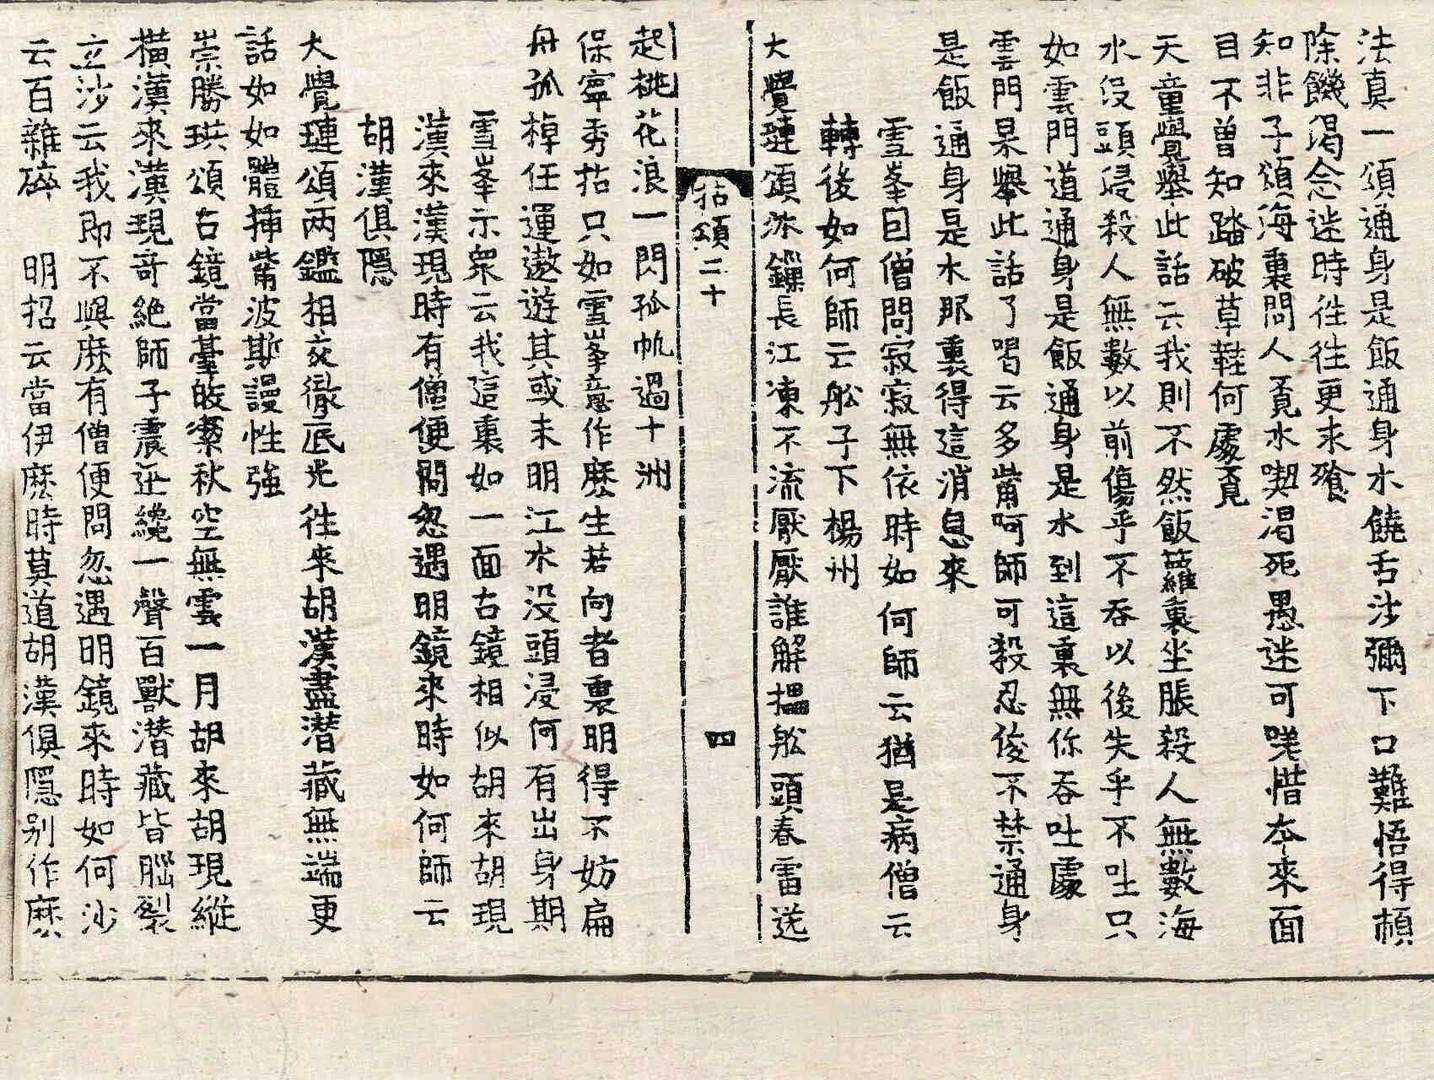 法真一頌通身是飯通身水饒舌沙彌下口難悟得頓
除饑渴念迷時徃徃更求飱
知非子頌海裏問人覔水喫渇死愚迷可咲惜夲來面
目不曾知踏破草鞋何處覔
天童覺舉此話云我則不然飯籮裏坐脹殺人無數海
水沒頭浸殺人無數以前傷乎不吞以後失乎不吐只
如雲門道通身是飯通身是水到這裏無你吞吐處
雲門杲舉此話了喝云多觜阿師可殺忍俊不禁通身
是飯通身是水那裏得這消息來
雪峯因僧問寂寂無依時如何師云猶是病僧云
轉後如何師云舩子下楊州
大覺璉頌沵鏁長江凍不流厭厭誰解揾舩頭春雷送
拈頌二十
四
起桃花浪一閃孤帆過十洲
保寧秀拈只如雪峯意作麽生若向者裏明得不妨扁
舟孤棹任運遨遊其或未明江水没頭浸何有出身期
雪峯示衆云我這裏如一面古鏡相似胡來胡現
漢來漢現時有僧便問忽遇明鏡來時如何師云
胡漢俱隱
大覺璉頌兩鑑相交徹底光徃來胡漢盡潜藏無端更
話如如體揷觜波斯謾性強
崇勝珙頌古鏡當臺皎潔秋空無雲一月胡來胡現縱
橫漢來漢現奇絶師子震延纔一聲百獸潜藏皆腦裂
立沙云我即不與麽有僧便問忽遇明鏡來時如何沙
云百雜碎 明招云當伊麽時莫道胡漢俱隱别作麽